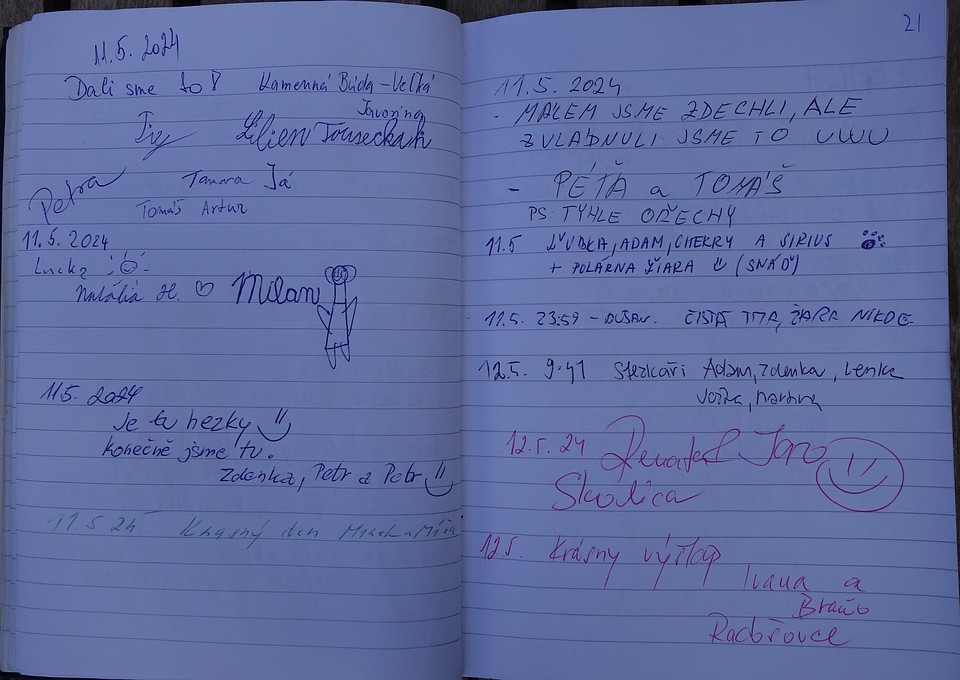 11.5. 2024
Dali sme to! Kamenná Búda – Veľká
Javorina
Petra
Tamara Já
Tomáš Artur
11.5. 2024
Lucka
Natália H. ♡ Milan
11.5. 2024
Je tu hezky
konečně jsme tu.
Zdenka, Petr a Petr
11 5 24 Krásný den
21
11.5. 2024
- MALEM JSME ZDECHLI, ALE
ZVLADNULI JSME TO UWU
- PÉŤA a TOMÁŠ
PS TYHLE OŘECHY
11.5 ĽUBKA, ADAM, CHERRY A SIRIUS
+ POLÁRNA ŽIARA (SNÁĎ)
11.5. 23:59 – DUŠAN. ČISTÁ TMA, ŽARA NIKDE.
12.5. 9:41 Stezkaři Adam, Zdenka, Lenka
12.5. 24 Renata & Jaro
Skalica
12 5. Krásny výstup
Ivana a
Braňo
Radějovce